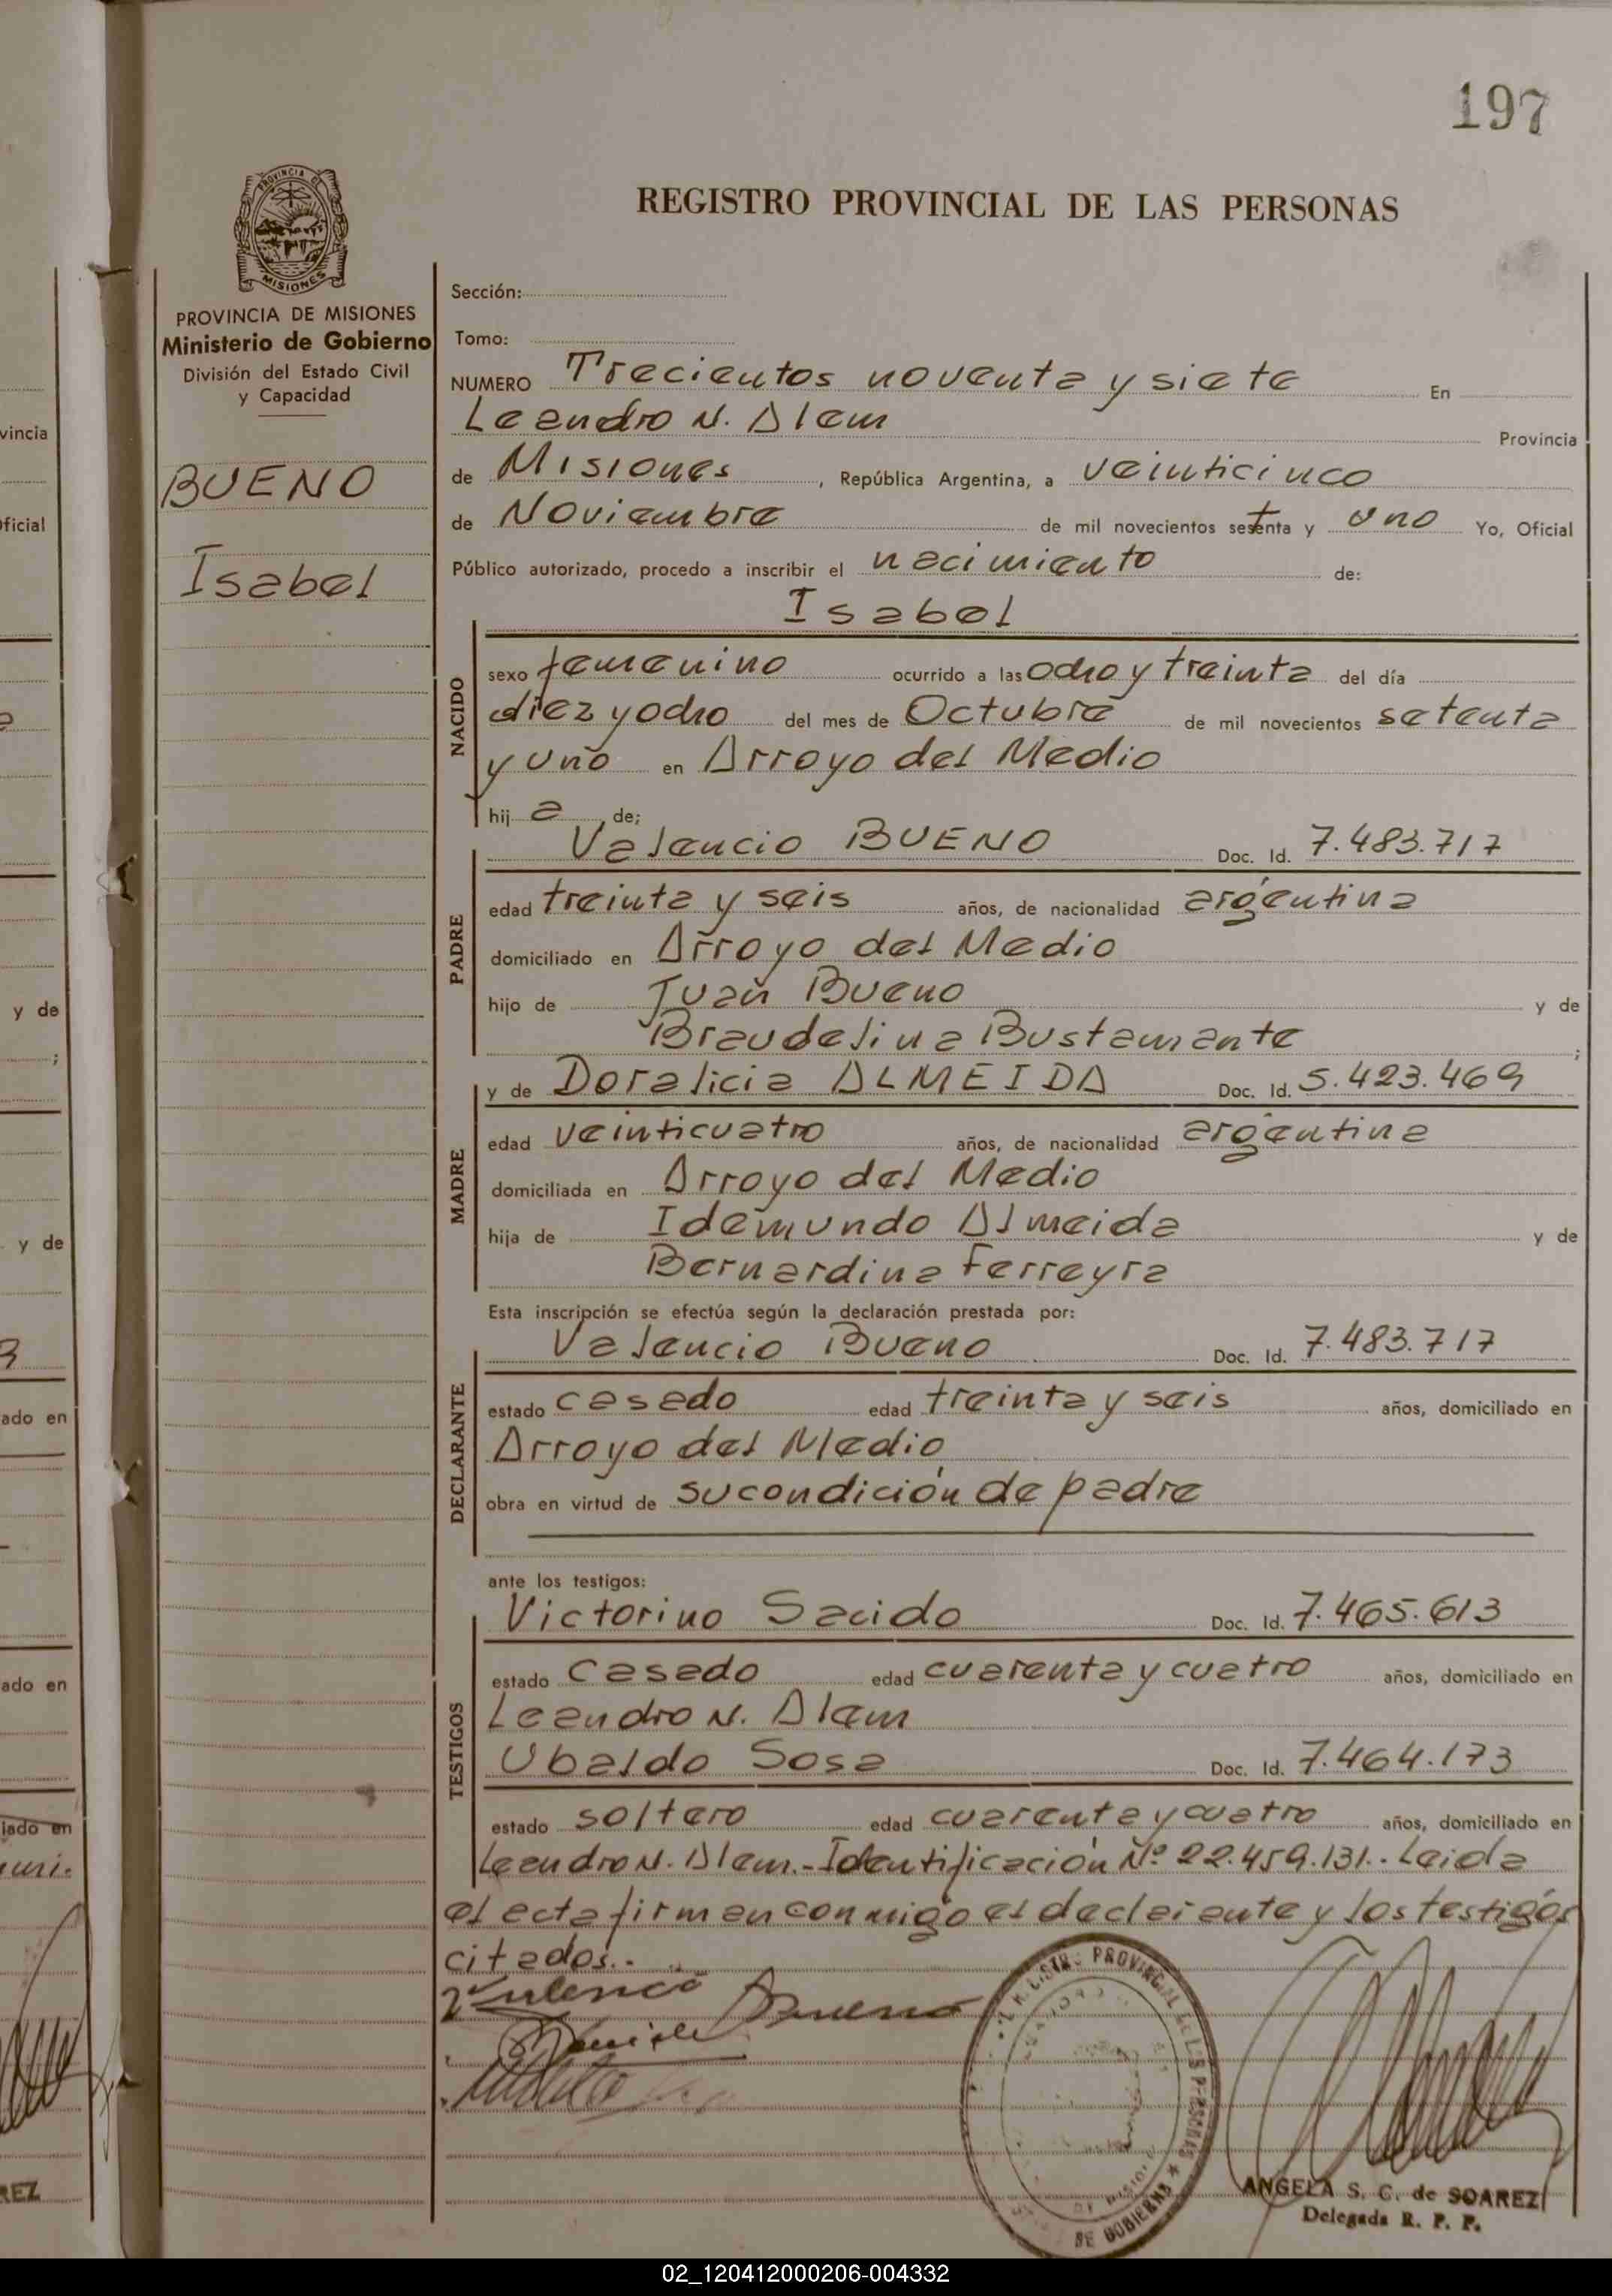 197
REGISTRO PROVINCIAL DE LAS PERSONAS
PROVINCIA DE
MISIONES
PROVINCIA DE MISIONES
Ministerio de Gobierno
División del Estado Civil
y Capacidad
BUENO
Isabel
Sección:
Tomo:
NUMERO Trecientos noventa y siete En
Leandro N. Alem Provincia
de Misiones, República Argentina, a veinticinco
de Noviembre de mil novecientos setenta y uno Yo, Oficial
Público autorizado, procedo a inscribir el nacimiento de:
Isabel
NACIDO
sexo femenino ocurrido a las ocho y treinta del día
diez y ocho del mes de Octubre de mil novecientos setenta
y uno en Arroyo del Medio
hij a de;
Valencio BUENO Doc. Id. 7.483.717
PADRE
edad treinta y seis años, de nacionalidad argentina
domiciliado en Arroyo del Medio
hijo de Juan Bueno y de
Braudelina Bustamante ;
y de Doralicia ALMEIDA Doc. Id. 5.423.469
MADRE
edad veinticuatro años, de nacionalidad argentina
domiciliada en Arroyo del Medio
hija de Idemundo Almeida y de
Bernardina Ferreyra
Esta inscripción se efectúa según la declaración prestada por:
Valencio Bueno Doc. Id. 7.483.717
DECLARANTE
estado casado edad treinta y seis años, domiciliado en
Arroyo del Medio
obra en virtud de su condición de padre
ante los testigos:
Victorino Sacido Doc. Id. 7.465.613
TESTIGOS
estado casado edad cuarenta y cuatro años, domiciliado en
Leandro N. Alem
Ubaldo Sosa Doc. Id. 7.464.173
estado soltero edad cuarenta y cuatro años, domiciliado en
Leandro N. Alem.- Identificación Nº 22.459.131.- Leida
el acta firman conmigo el declarante y los testigos
citados.-
Valencio Bueno
REGISTRO PROVINCIAL DE LAS PERSONAS
DE GOBIERNO
ANGELA S. C. de SOAREZ
Delegada R. P. P.
vincia
Oficial
y de
;
y de
ado en
ado en
iado en
REZ
02_120412000206-004332